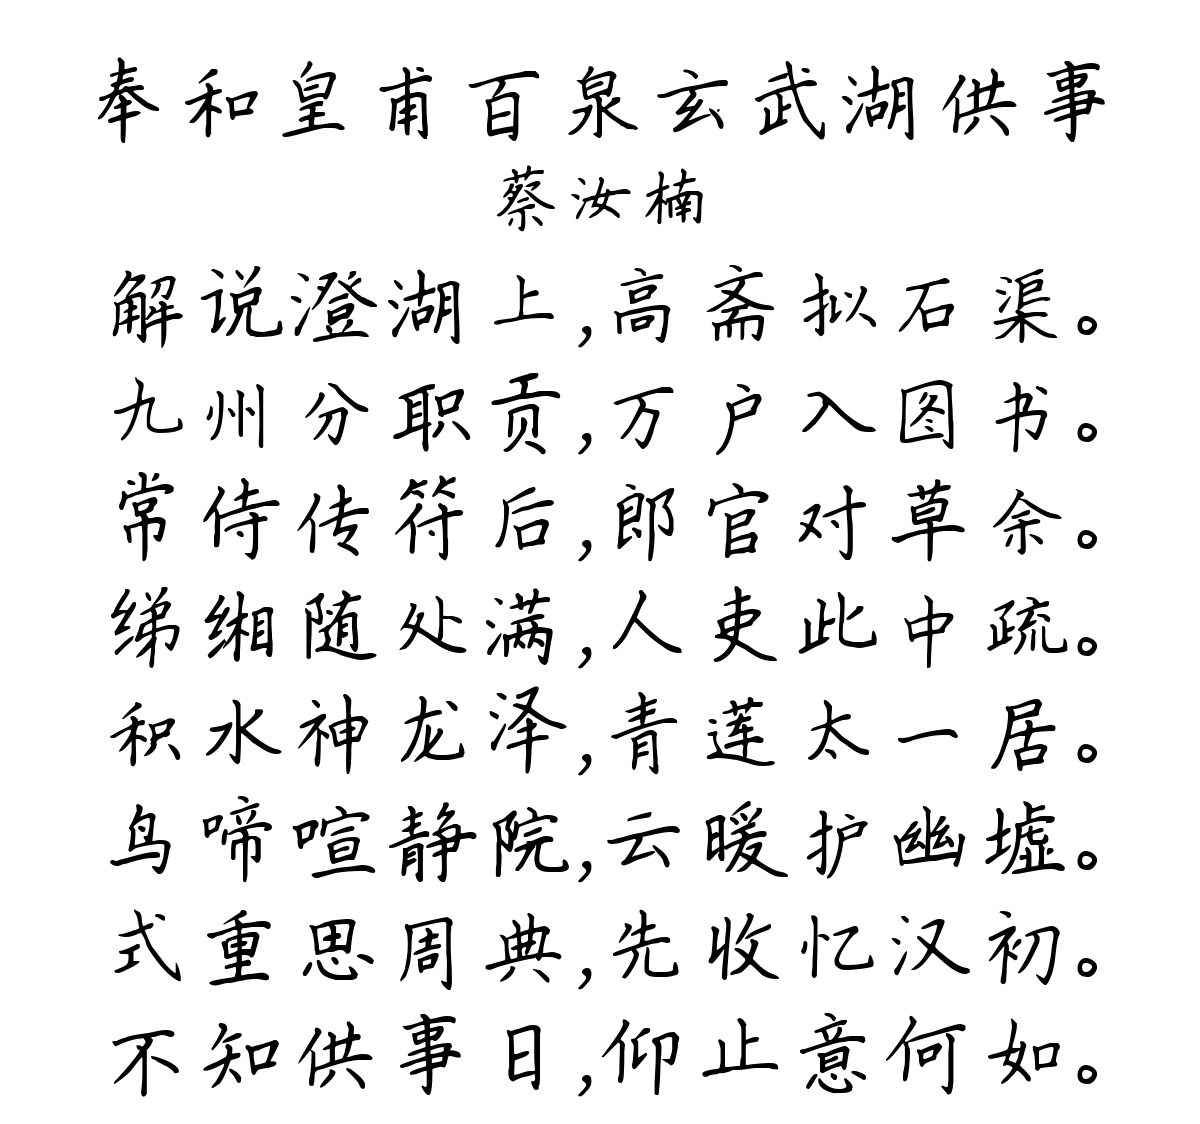 奉和皇甫百泉玄武湖供事
蔡汝楠
解说澄湖上,高斋拟石渠。
九州分职贡,万户入图书。
常侍传符后,郎官对草余。
绨缃随处满,人吏此中疏。
积水神龙泽,青莲太一居。
鸟啼喧静院,云暖护幽墟。
式重思周典,先收忆汉初。
不知供事日,仰止意何如。